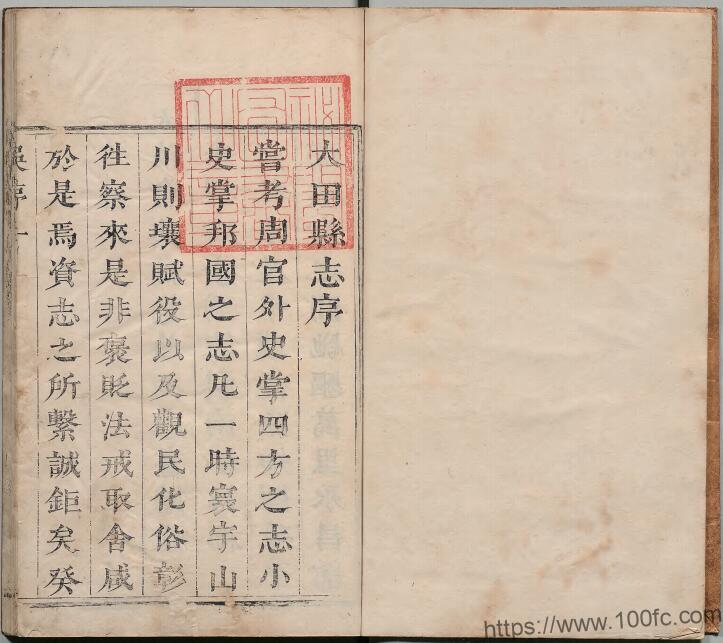 大田縣志序
嘗考周官外史掌四方之志小
史掌邦國之志凡一時寰宇山
川則壤賦役以及觀民化俗彰
徃察來是非褒貶法戒取舍咸
於是焉資志之所繫誠鉅矣癸
吳序 一
https://www.100fc.com